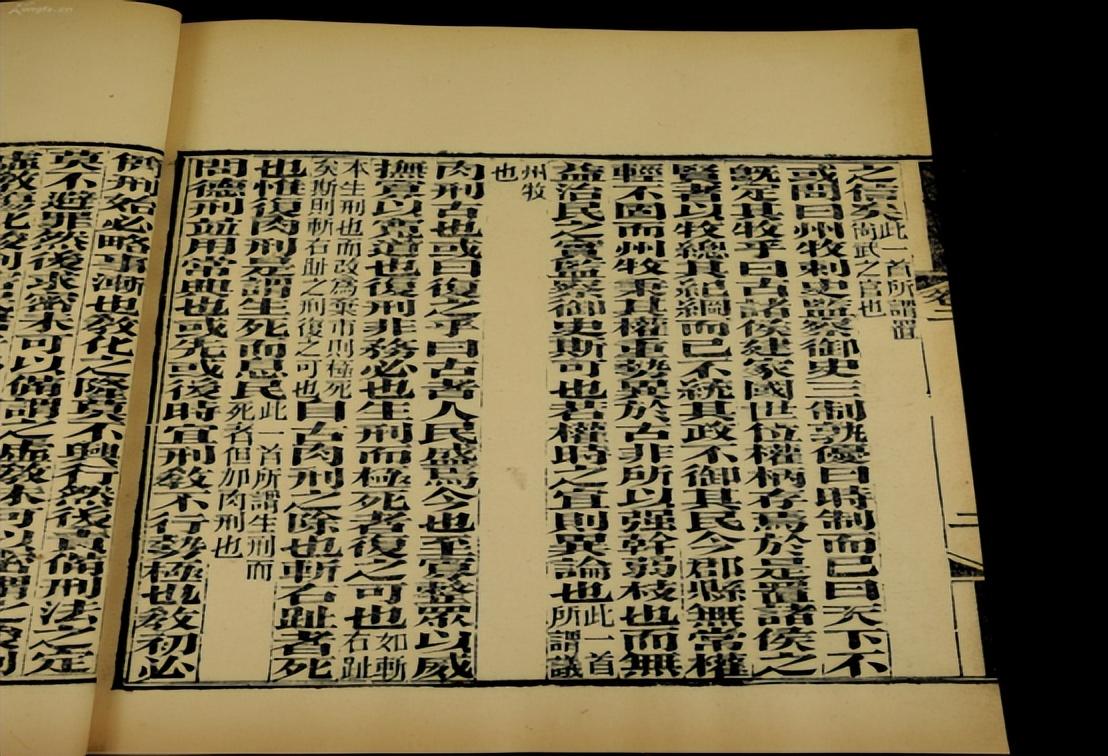 之信矣此一首所謂置尚武之官也
或問曰州牧刺史監察御史三制孰優曰時制而已曰天下不
既定其牧乎曰古諸侯建家國世位權柄存焉於是置諸侯之
賢者以牧總其紀綱而已不統其政不御其民今郡縣無常權
輕不固而州牧秉其權重勢異於古非所以强幹弱枝也而無
益治民之實監察御史斯可也若權時之宜則異論也此一首所謂議
州牧也
肉刑古也或曰復之乎曰古者人民盛焉今也至寡整眾以威
撫寡以寬道也復刑非務必也生刑而極死者復之可也如斬右趾
本生刑也而改爲棄市則極死矣斯則斬右趾之刑復之可也自古肉刑之除也斬右趾者死
也惟復肉刑是謂生死而息民此一首所謂生刑而死者但加肉刑也
問德刑並用常典也或先或後時宜刑教不行勢極也教初必
刑始必略事漸也教化之隆莫不興行然後責備刑法之定
莫不避罪然後求密未可以備謂之虛教未可以密謂之峻刑
虛教傷化峻刑